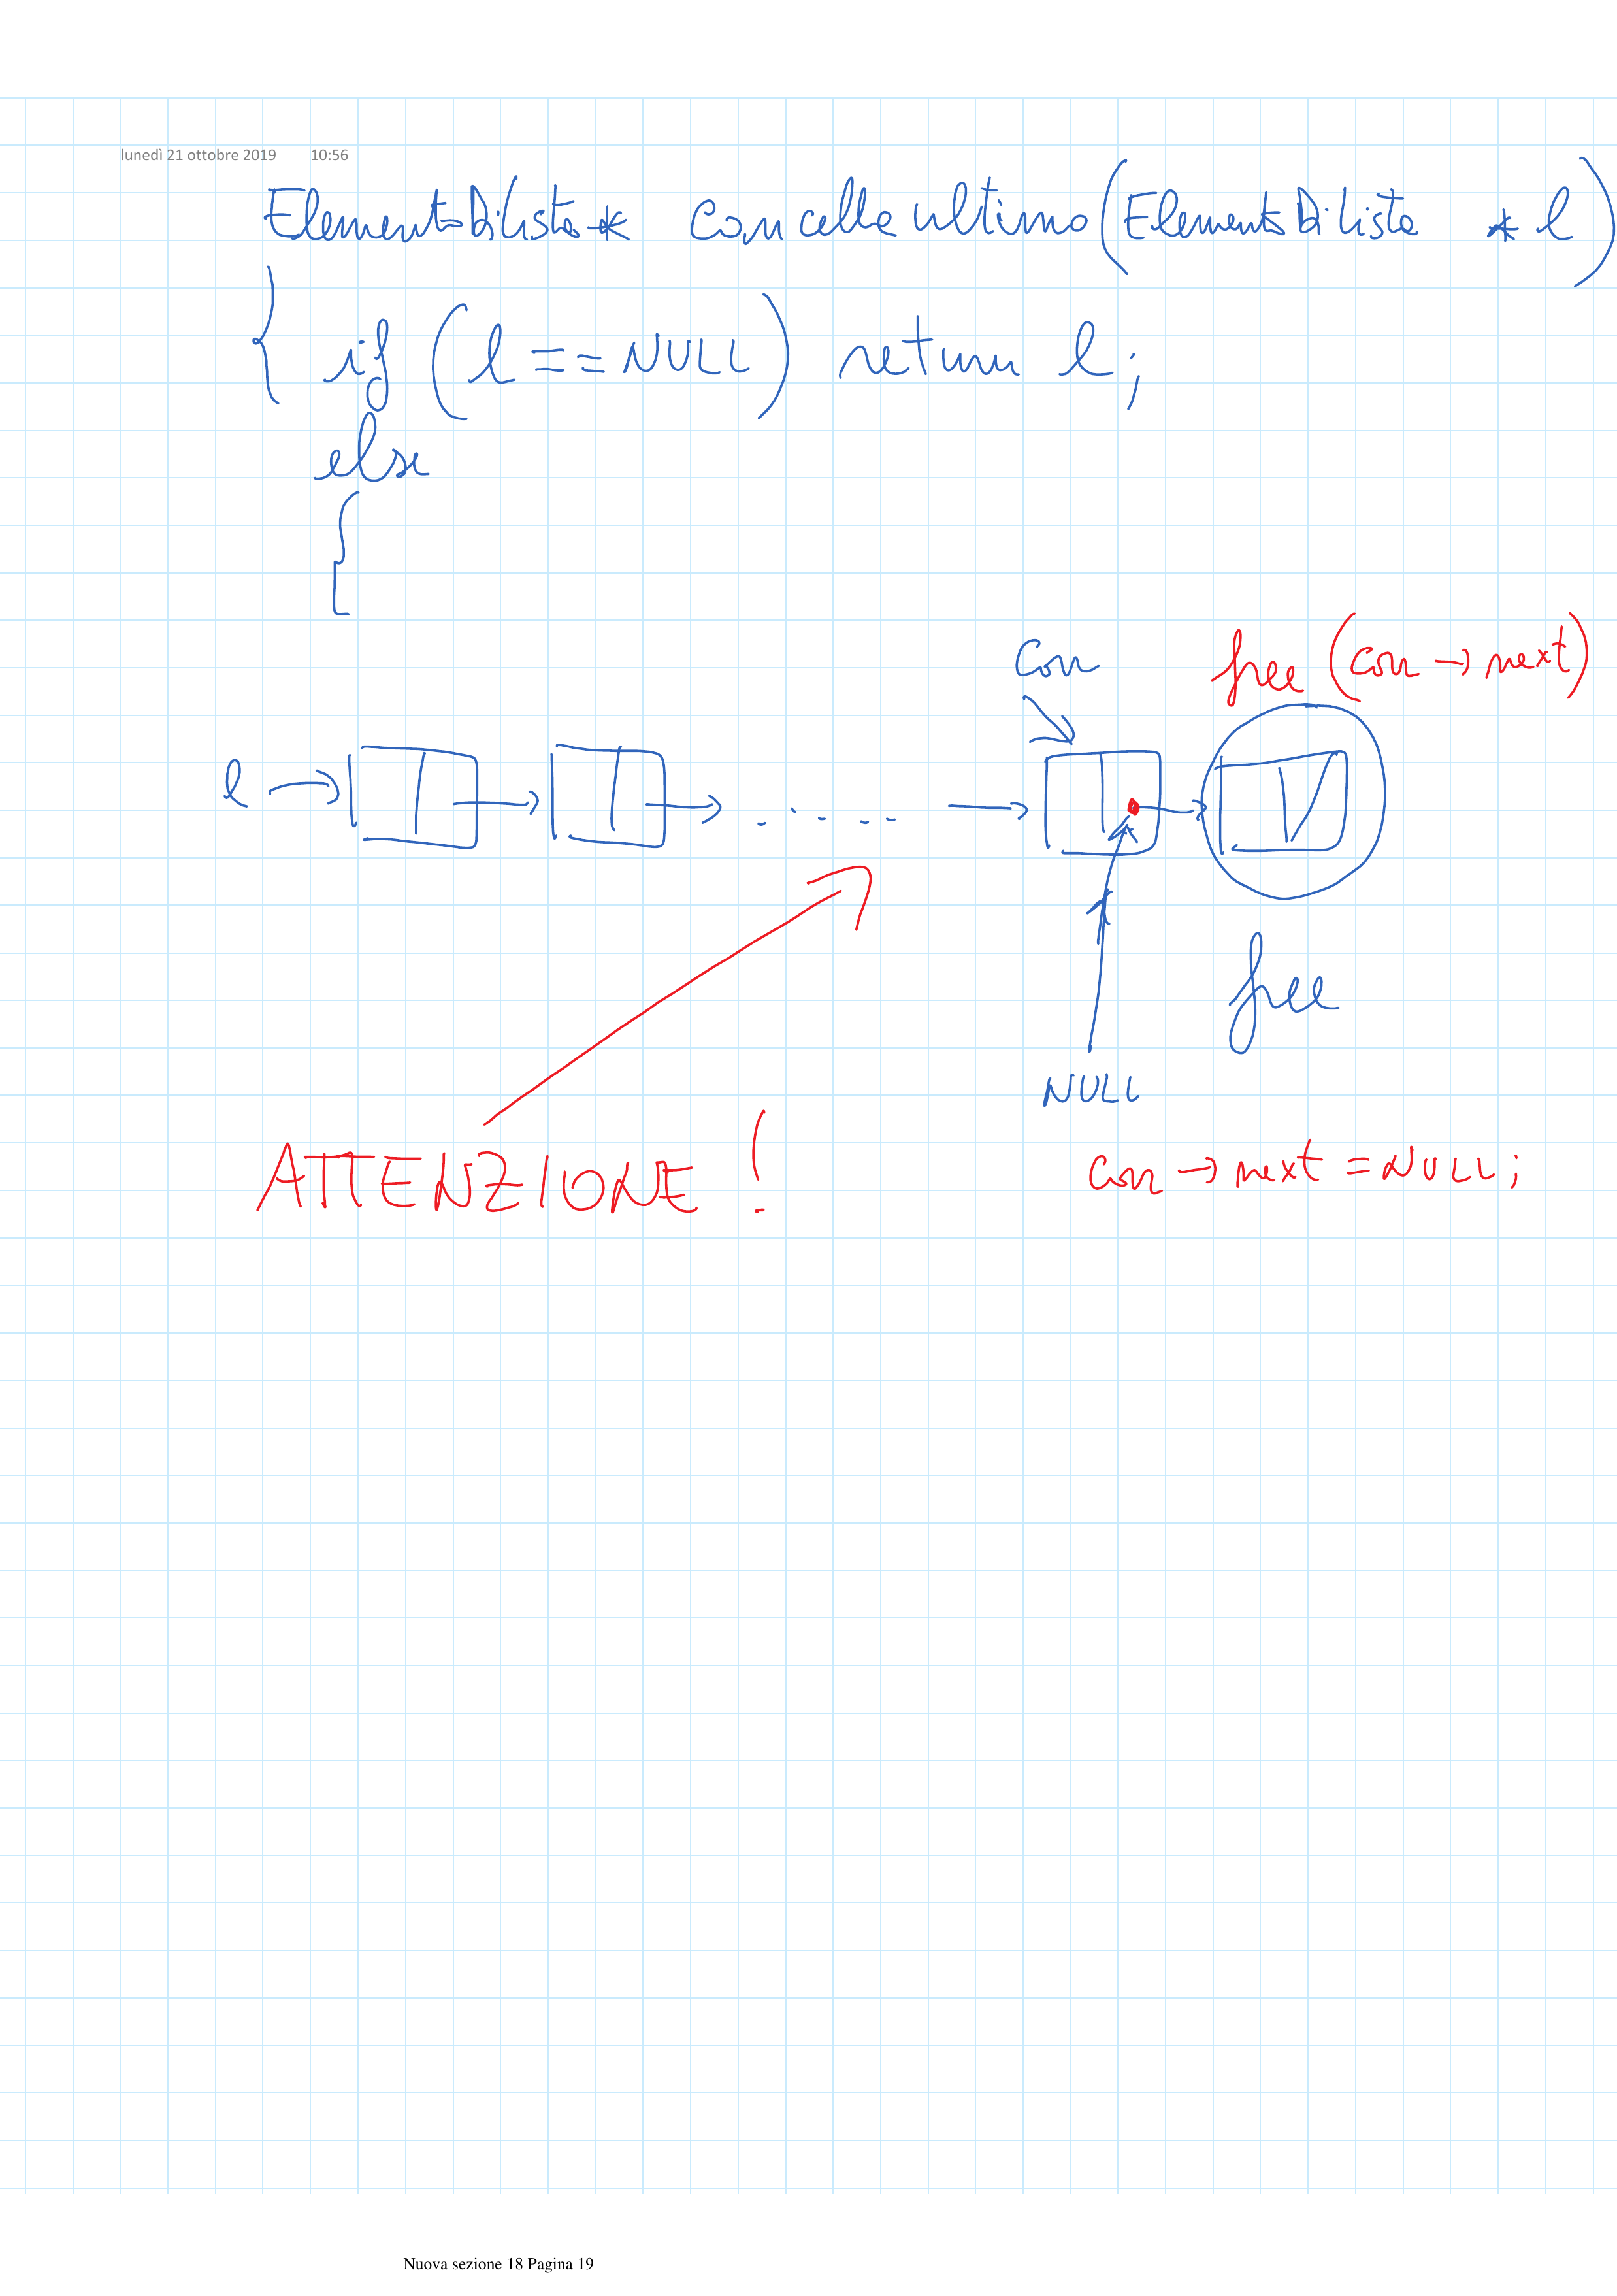 lunedì 21 ottobre 2019 10:56
ElementoDiLista* CancellaUltimo(ElementoDiLista *l)
{ if (l == NULL) return l;
else
{
Corr free (Corr → next)
l
free
NULL
ATTENZIONE !
Corr → next = NULL;
Nuova sezione 18 Pagina 19